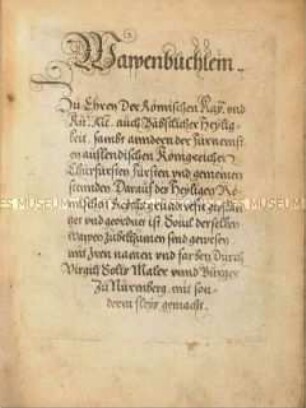 Wapenbüchlein
Zu Ehren Der Römischen Kay. vnd
Kü. Mt. auch Bäbstlicher Heylig-
keit, sambt anndern der fürnemst
en auslendischen Königreichen
Churfürsten fürsten vnd gemeinen
stennden Darauf des Heyligen Rö-
mischen
vnd geordnet ist Souil derselben
wapen zubekhumen sind gewesen
mit Jren namen vnd farben Durch
Virgilj Solis Maler vnnd Bürger
Zu Nürenberg, mit son-
derm fleys gemacht.
MUSEUM